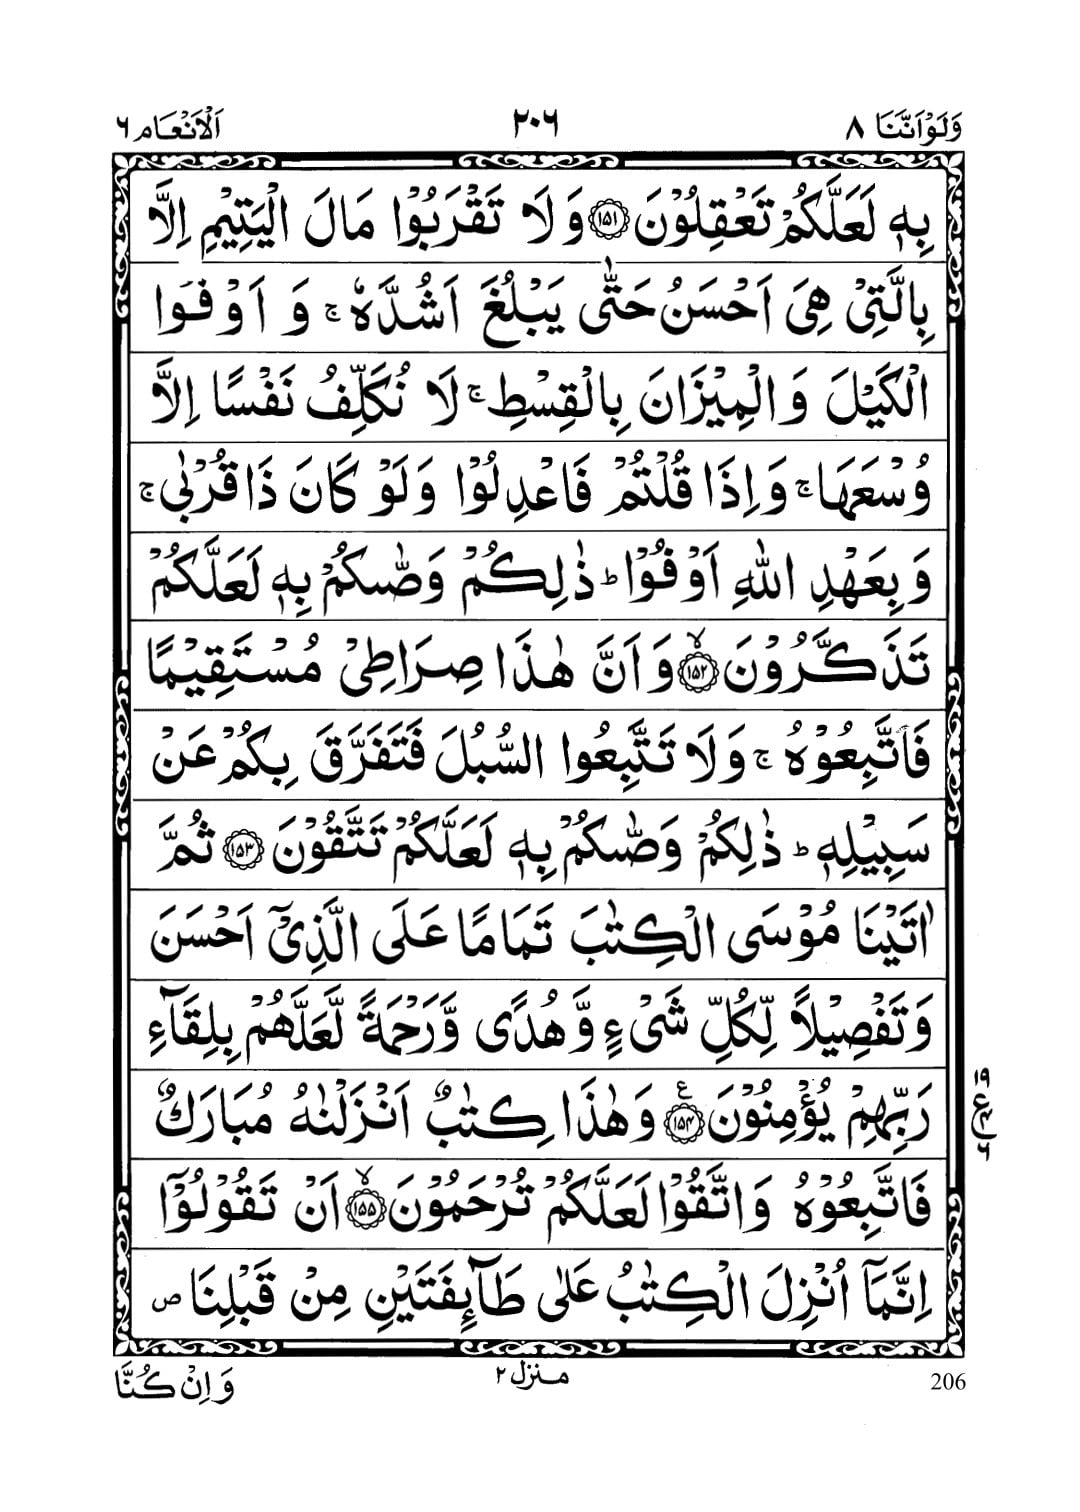 وَلَوْ اَنَّنَا ٨
٢٠٦
اَلْاَنْعَام ٦
بِهٖ لَعَلَّكُمْ تَعْقِلُوْنَ ١٥١ وَ لَا تَقْرَبُوْا مَالَ الْيَتِيْمِ اِلَّا
بِالَّتِيْ هِيَ اَحْسَنُ حَتّٰى يَبْلُغَ اَشُدَّهٗ ۚ وَ اَوْفُوا
الْكَيْلَ وَ الْمِيْزَانَ بِالْقِسْطِ ۚ لَا نُكَلِّفُ نَفْسًا اِلَّا
وُسْعَهَا ۚ وَ اِذَا قُلْتُمْ فَاعْدِلُوْا وَلَوْ كَانَ ذَا قُرْبٰى ۚ
وَ بِعَهْدِ اللّٰهِ اَوْفُوْا ؕ ذٰلِكُمْ وَصّٰىكُمْ بِهٖ لَعَلَّكُمْ
تَذَكَّرُوْنَ ۙ ١٥٢ وَ اَنَّ هٰذَا صِرَاطِيْ مُسْتَقِيْمًا
فَاتَّبِعُوْهُ ۚ وَلَا تَتَّبِعُوا السُّبُلَ فَتَفَرَّقَ بِكُمْ عَنْ
سَبِيْلِهٖ ؕ ذٰلِكُمْ وَصّٰىكُمْ بِهٖ لَعَلَّكُمْ تَتَّقُوْنَ ١٥٣ ثُمَّ
اٰتَيْنَا مُوْسَى الْكِتٰبَ تَمَامًا عَلَى الَّذِيْٓ اَحْسَنَ
وَ تَفْصِيْلًا لِّكُلِّ شَيْءٍ وَّ هُدًى وَّ رَحْمَةً لَّعَلَّهُمْ بِلِقَآءِ
رَبِّهِمْ يُؤْمِنُوْنَ ع ١٥٤ وَ هٰذَا كِتٰبٌ اَنْزَلْنٰهُ مُبَارَكٌ
١٩
ع
٤
٦
فَاتَّبِعُوْهُ وَ اتَّقُوْا لَعَلَّكُمْ تُرْحَمُوْنَ ۙ ١٥٥ اَنْ تَقُوْلُوْٓا
اِنَّمَآ اُنْزِلَ الْكِتٰبُ عَلٰى طَآىِٕفَتَيْنِ مِنْ قَبْلِنَا ص
206
منزل ٢
وَ اِنْ كُنَّا